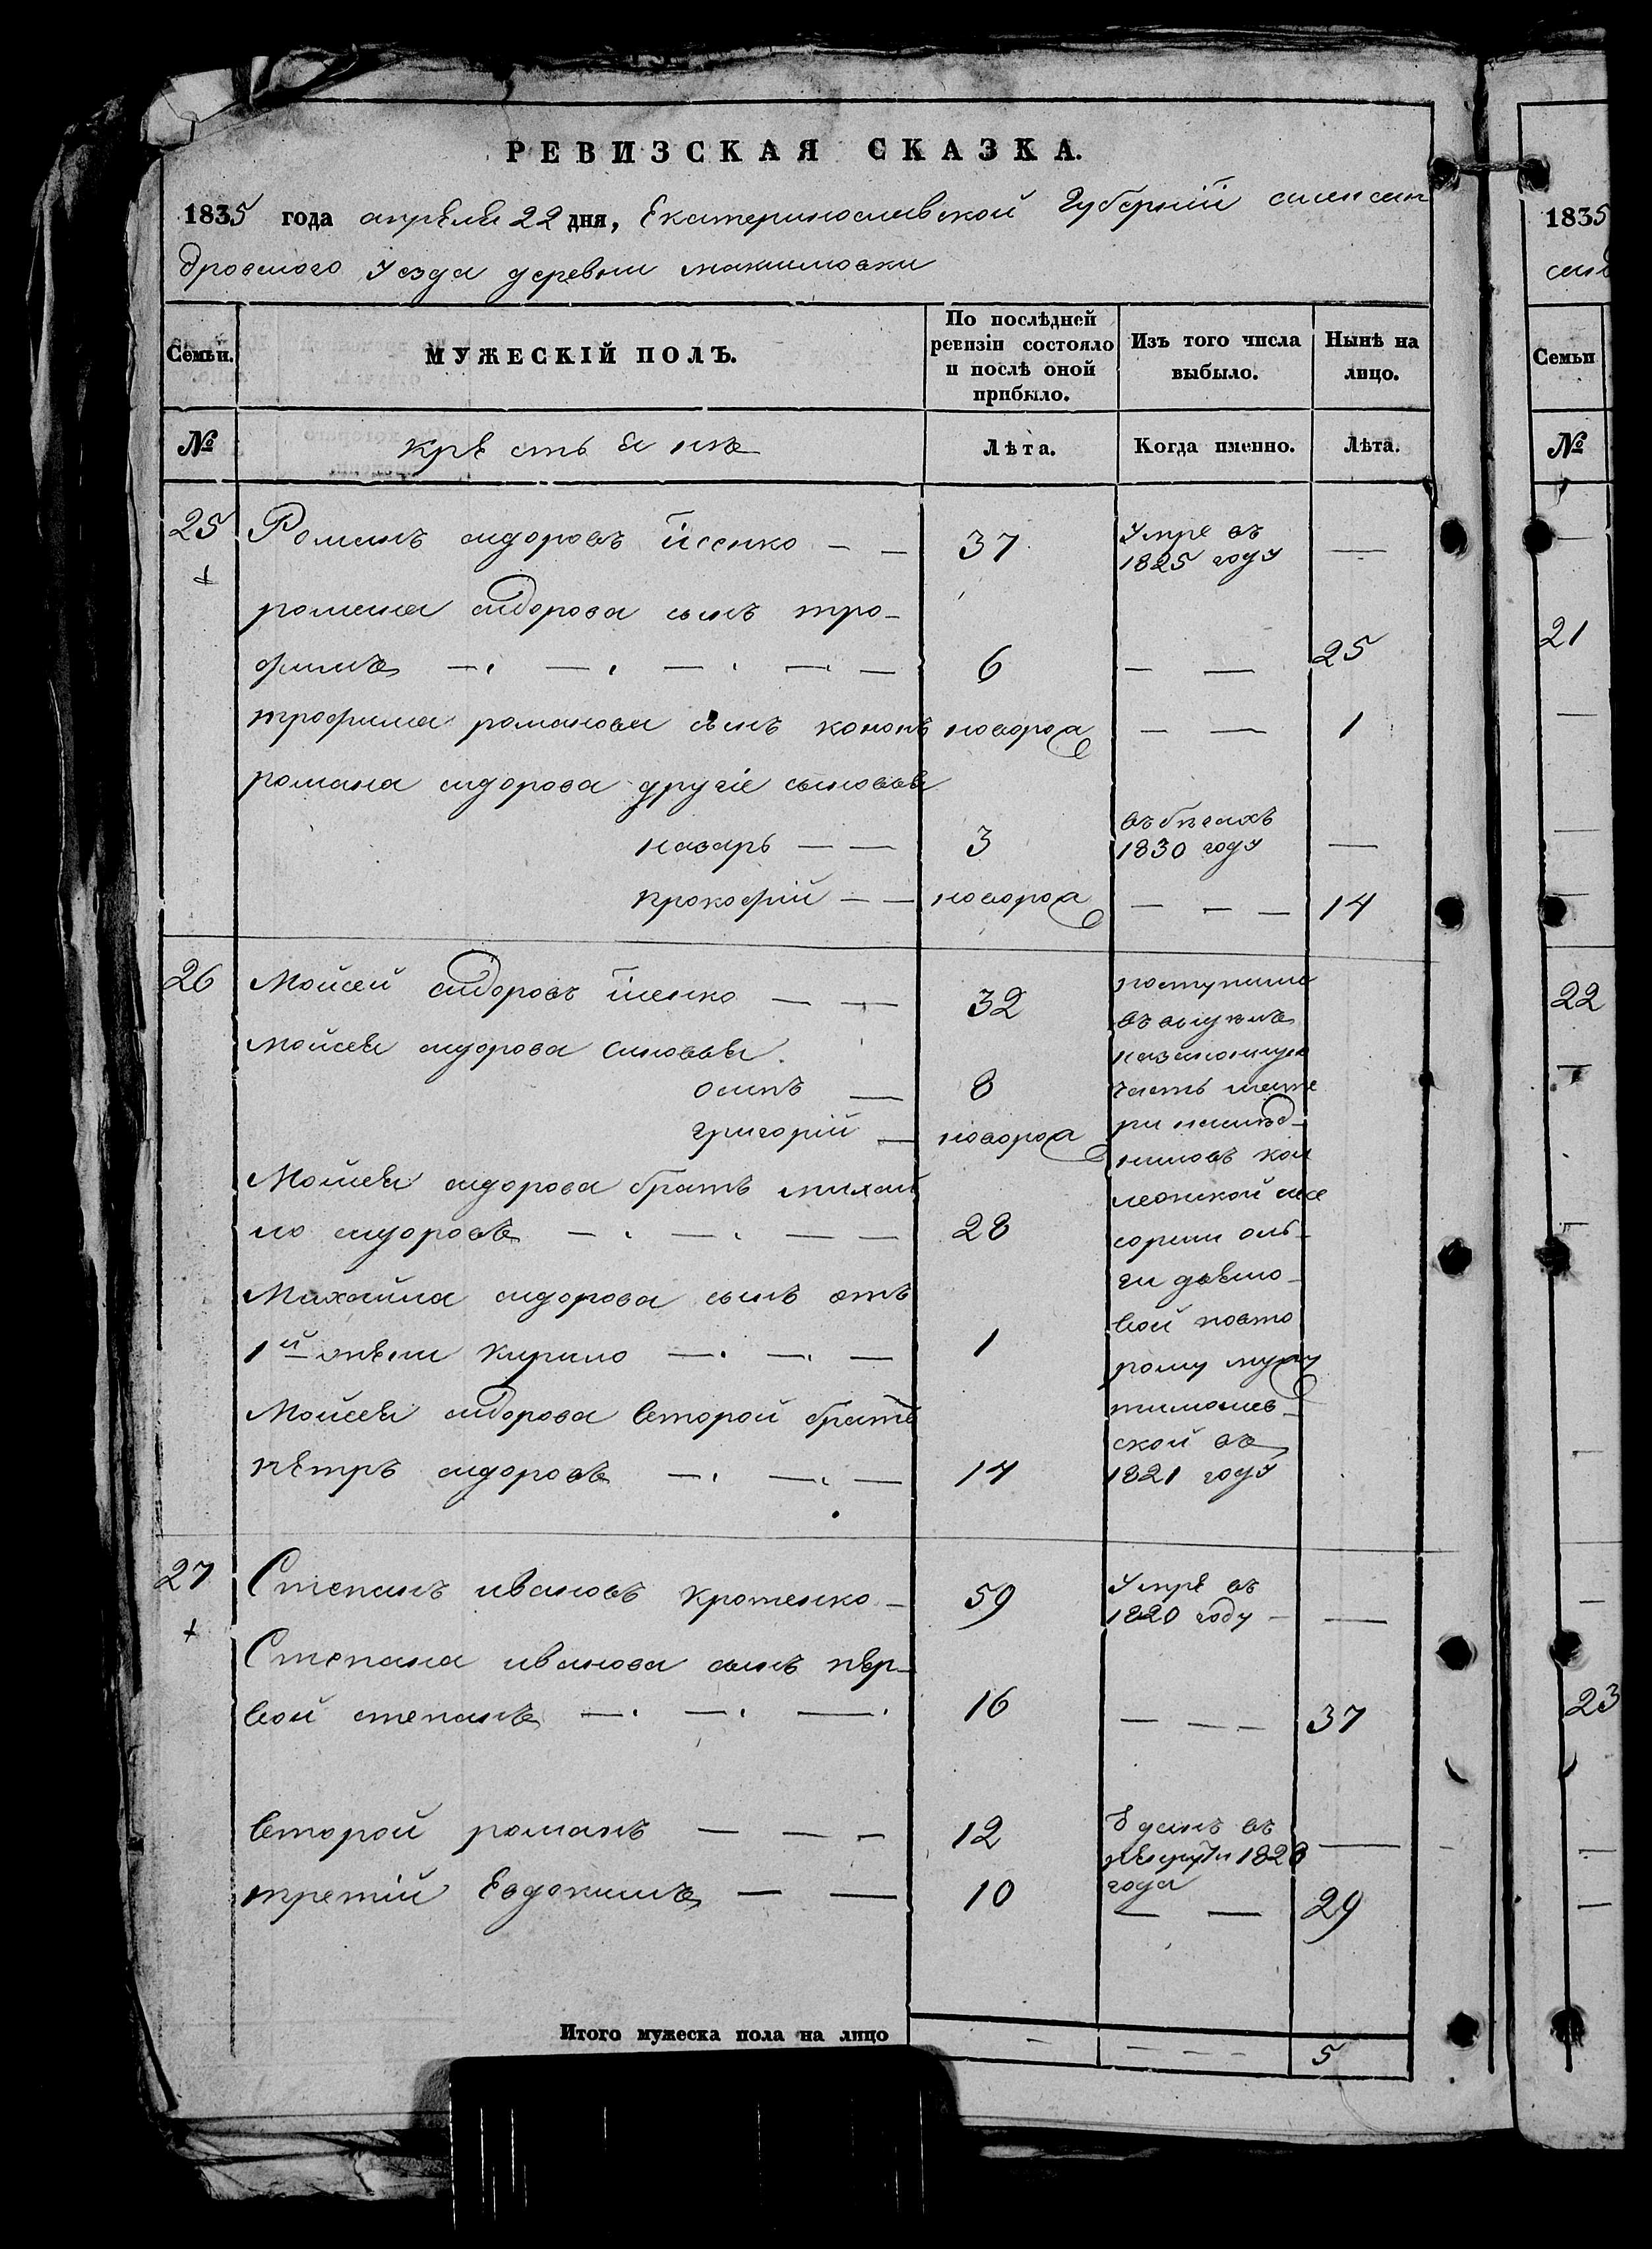 РЕВИЗСКАЯ СКАЗКА.
1835 года апреля 22 дня, Екатеринославской Губернии алексан
дровского уезда деревни максимовки
Семьи. МУЖЕСКІЙ ПОЛЪ. По послѣдней ревизіи состояло и послѣ оной прибыло. Изъ того числа выбыло. Нынѣ на лицо.
№ крестьяне Лѣта. Когда именно. Лѣта.
25 Романъ сидоровъ 37 умре въ 1825 году —
романа сидорова сынъ тро-
фимъ 6 — — 25
трофима романова сынъ кононъ новорож — — 1
романа сидорова другіе сыновья
назарь — — 3 въ бегахъ 1830 году —
прокофій — — новорож — — — 14
26 Мойсей сидоровъ — — 32
мойсея сидорова сыновья
осипъ — 8
григорій — новорож
Мойсея сидорова братъ михай
ло сидоровъ 28
Михайла сидорова сынъ отъ
1й жены кирило 1
Мойсея сидорова второй братъ
петръ сидоровъ 14
поступили
въ
часть
сорши оль-
ги
вой повто
рому мужу
ской въ
1821 году
27 Степанъ ивановъ кротенко — 59 умре въ 1820 году — —
Степана иванова сынъ пер-
вой степанъ 16 — — — 37
второй романъ — — — 12 въ рекруты 1828 года —
третій Евдокимъ — — 10 — — 29
Итого мужеска пола на лицо — — — — 5
1835
Семьи
№
21
22
23